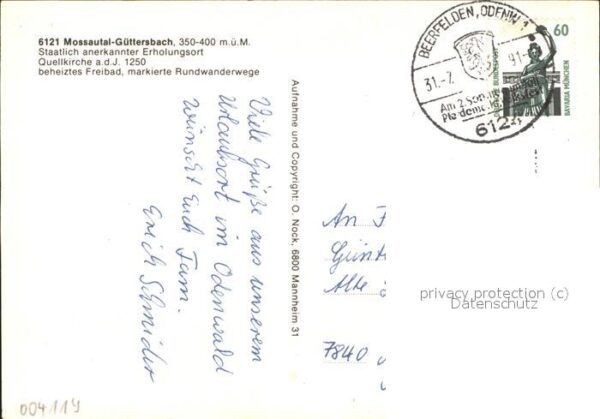 6121 Mossautal-Güttersbach, 350-400 m.ü.M.
Staatlich anerkannter Erholungsort
Quellkirche a.d.J. 1250
beheiztes Freibad, markierte Rundwanderwege
Viele Grüße aus unserem
Urlaubsort im Odenwald
wünscht Euch Fam.
Erich Schneider
Aufnahme und Copyright: O. Nock, 6800 Mannheim 31
BEERFELDEN, ODENW 1
31.-7.
91-
Am 2.
6124
60
DEUTSCHE BUNDESPOST
BAVARIA MÜNCHEN
An F
Günt
Alte
7840
privacy protection (c)
Datenschutz
004119